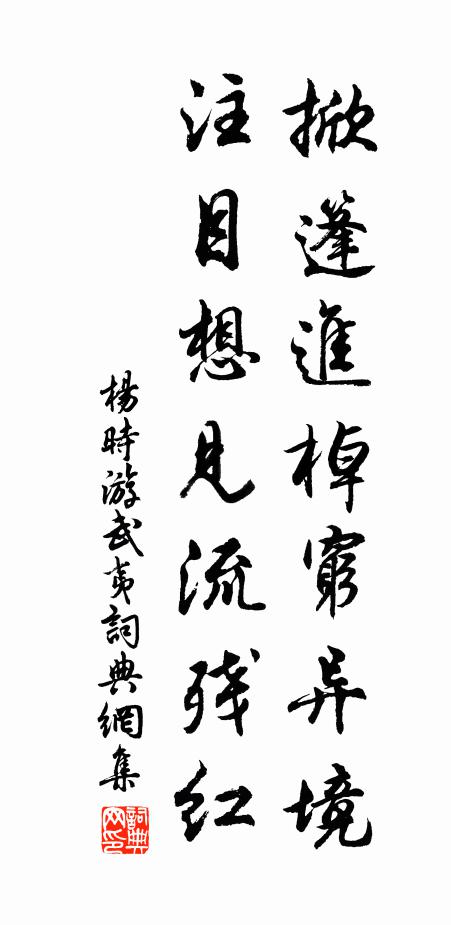 掀篷進棹窮异境
注目想見流残紅
楊時游武夷詞典網集
詞典网印